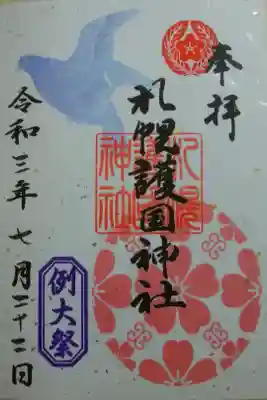 奉拝
札幌護国神社
札幌
神社
令和三年 七月二十二日
例大祭